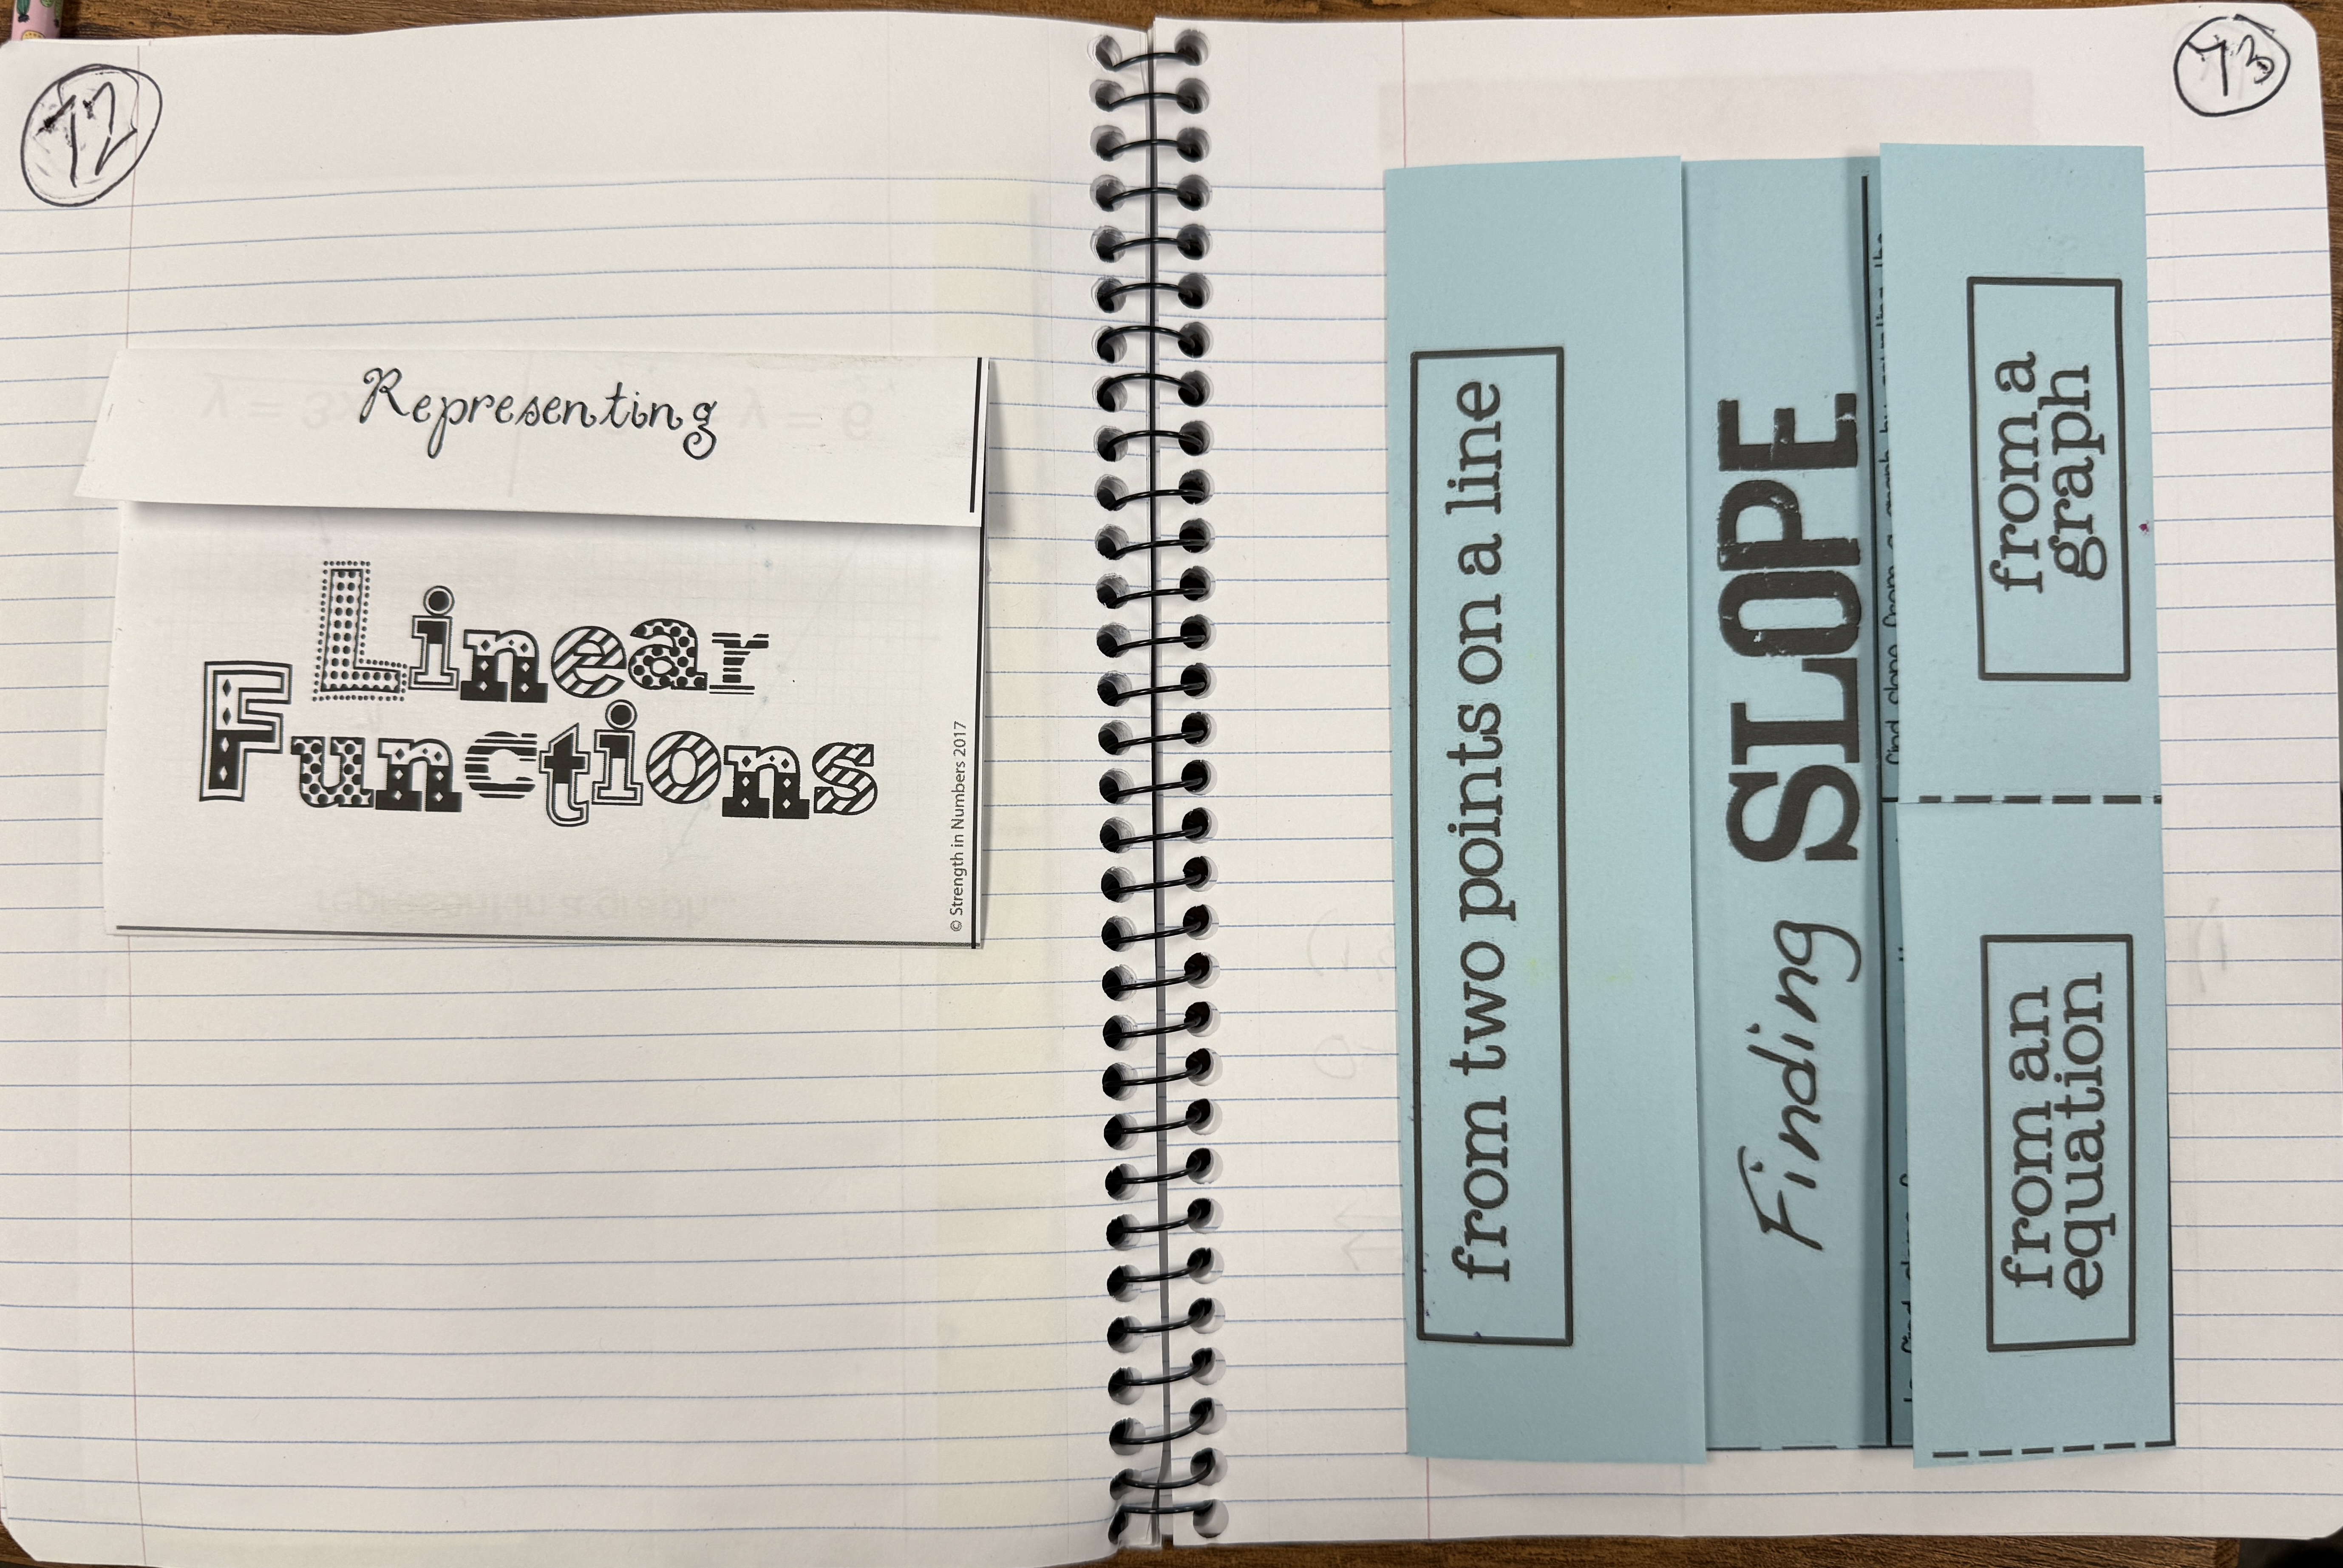 72
Representing
Linear
Functions
© Strength in Numbers 2017
73
from two points on a line
Finding SLOPE
from a
graph
from an
equation